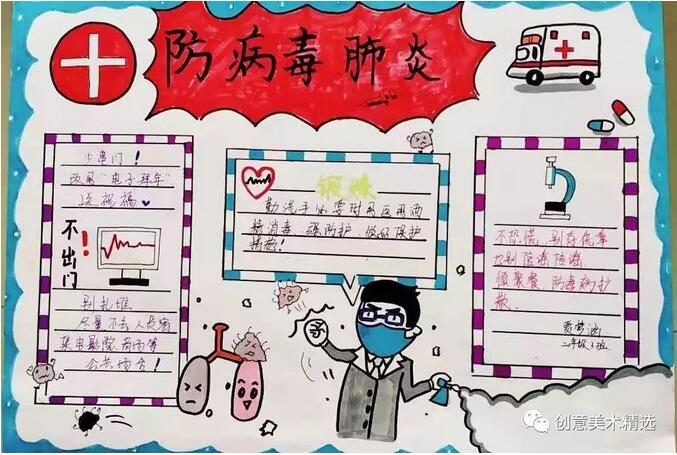 防病毒肺炎
少串门！
改用"电子拜年"
送祝福
不出门！
别扎堆
尽量不去人员密
集电影院、商场等
公共场合！
锻炼
勤洗手必要时用医用酒
精消毒、强防护、做好保护
措施！
不恐慌，别存侥幸
也别信谣传谣
慎聚餐 防毒病护
二年级3班
创意美术精选